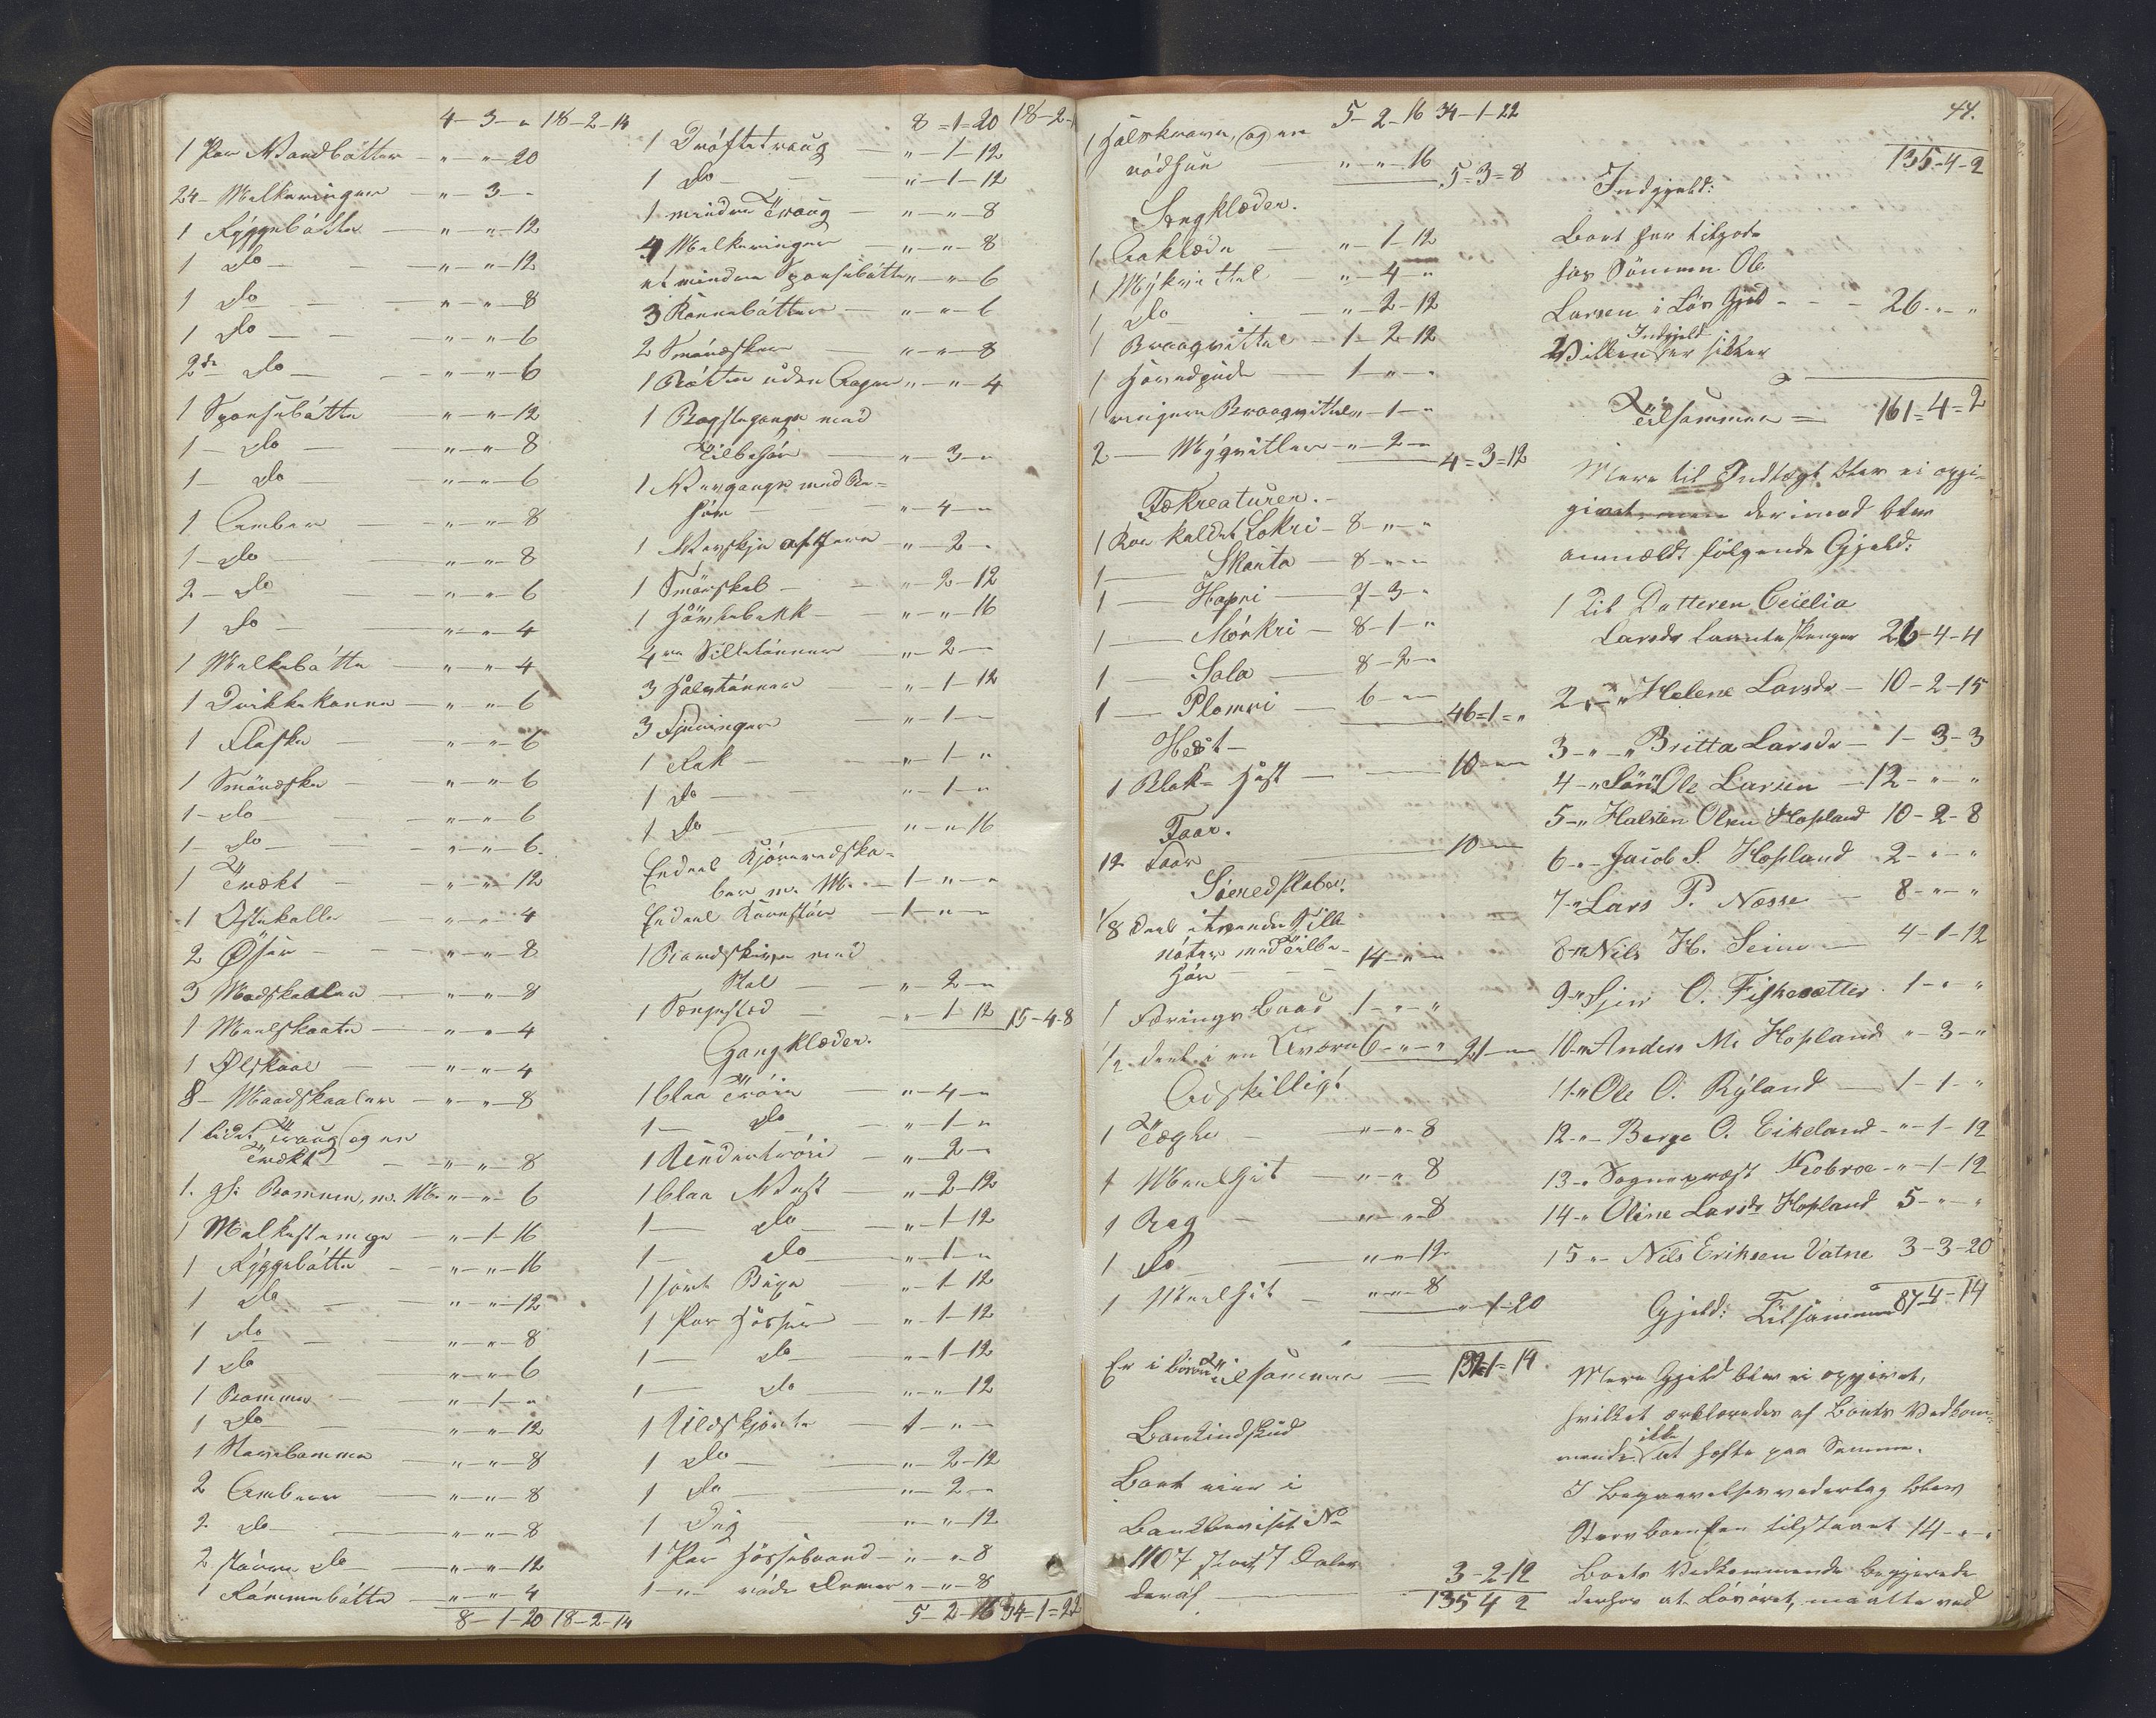 4-3-" 18-2-14
1 Par Vandbøtter - " - " - 20
24 - Melkeringer - " 3 -
1 Ryggebøtte - " - " - 12
1 do - " - " - 12
1 do - " - " - 8
1 do - " - " - 6
2de do - " - " - 6
1 Sponsebøtte - " - " - 12
1 - do - " - " - 8
1 - do - " - " - 6
1 Ambar - " - " - 8
1 - do - " - " - 8
2 - do - " - " - 6
1 do - " - " - 4
1 Melkebøtte - " - " - 4
1 Drikkekanne - " - " - 6
1 Flaske - " - " - 6
1 Smørøske - " - " - 6
1 - do - " - " - 6
1 - do - " - " - 6
1 Trækt - " - " - 12
1 Ostekolle - " - " - 4
2 Øser - " - " - 8
3 Madskaaler - " - " - 8
1 Meelskaate - " - " - 4
1 Ølskaal - " - " - 4
8 - Maadskaaler - " - " - 8
1 lidet Traug og en
Trækt - " - " - 8
1. gl: Bomme, m. M. " - " - 6
1 Melkestampe - " - 1 - 16
1 Ryggebøtte - " - " - 16
1 do - " - " - 12
1 do - " - " - 8
1 do - " - " - 6
1 Bomme - " - 1 - "
1 do - " - " - 12
1 Navebomme - " - " - 8
2 Ambare - " - " - 8
2 do - " - " - 8
2 større do - " - " - 12
1 Rømmebøtte - " - " - 4
8 - 1 - 20 18 - 2 - 14
8 = 1 = 20 18 - 2 -
1 Drøftetraug - " - 1 - 12
1 do - " - 1 - 12
1 mindre Traug - " - " - 8
4 Melkeringer - " - " - 8
et mindre Sponsebøtte " - " - 6
3 Kannebøtter - " - " - 6
2 Smørøsker - " - " - 8
1 Bøtte uden Lager " - " - 4
1 Bagstegange med
Tilbehør - " - 3 - "
1 Vævgange med Be=
hør - " - 4 - "
1 Vævskje af Jern - " - 2 -
1 Smørskab - " - 2 - 12
1 Hørhebakk - " - " - 16
4re Sildetønner - " - 2 -
3 Halvtønner - " - 1 - 12
3 Fjeringer - " - 1 -
1 Rak - " - 1 - "
1 do - " - 1 - "
1 do - " - " - 16
Endeel Kjøreredska=
ber m. M. - 1 - " - "
Endeel Kornstør - 1 - " - "
1 Bordskive med
Stol - " - 2 - "
1 Sengested - " - 1 12 15 - 4 - 8
Gangklæder.
1 blaa Trøie - " - 4 - "
1 - do - " - 1 - "
1 Undertrøie - " - 2 -
1 blaa Vest - " - 2 - 12
1 - do - " - 1 - 12
1 - do - " - 1 - "
1 sort Buxe - " - 1 - 12
1 Par Hosser - " - 1 - 12
1 - do - " - 1 - 12
1 - do - " - " - 12
1 Uldskjorte - 1 - " -
1 do - " - 2 - 12
1 do - " - 2 -
1 Dug - " - " - 12
1 Par Hossebaand - " - " - 8
1 - " røde Ermer " - " - 8
5 - 2 - 16 34 = 1 = 22
5 - 2 - 16 34 - 1 - 22
1 Halskrave, og en
rød Hue " - " - 16 5 = 3 = 8
Sengklæder.
1 Aaklæde - " - 1 - 12
1 Mykvittel " - 4 - "
1 do - " - 2 - 12
1 Braaqvittel - 1 - 2 - 12
1 Hovedpude - 1 - " - "
1 ringere Braaqvittel " - 1 - "
2 - Myqvitler - " - 2 - 4 = 3 = 12
Fækreaturer. -
1 Koe kaldet Lokri - 8 - " - "
1 - Skauta - 8 - " - "
1 - Hapri - 7 - 3 - "
1 - Mørkri - 8 - 1 - "
1 - Sala - 8 - 2 -
1 - Plomri - 6 - 46 = 1 = "
Hest -
1 Blak - Hest - 10 -
Faar.
12 Faar 10 -
Søeredskaber.
1/8 Deel i trende Sild
nøter med Tilbe-
hør - 14 - " -
1 Færings Baad 1 - " - "
1/2 deel i en Kværn 6 - " - " 21 -
Adskilligt.
1 Tæghe - " - " - 8
1 Meelhit - " - " 8
1 Reg - " - " - 8
1 do " - " - 12
1 Meelhit - " - " - 8 " - 1 - 20
Er i Boen Tilsammen = 132 - 1 = 14.
Boetindskud
Boet eier i
Bankbeviset No
1107 stort 7 Daler
deraf 3 - 2 - 12
135 4 2
44.
135 - 4 - 2
Indgjeld:
Boet har tilgode
hos Sønnen Ole
Larsen i Løs Gjæld - - - 26. " - "
Indgjeld
Vitten er sikker
Tilsammen = 161 = 4 = 2
Mere til Indtægt blev ei opgi-
givet, derimod blev
anmeldt følgende Gjeld:
1 Til Datteren Ceselia
Larsdr laante Penger 26 - 4 - 4
2 - " - " Helene Larsdr - 10 - 2 - 15
3 - " - " Britta Larsdr - 1 - 3 - 3
4 - " Søn Ole Larsen - 12 - " - "
5 - " Halsten Olsen Hopland 10 - 2 - 8
6 - " - Jacob S. Hopland 2 - " - "
7 - " Lars P. Næsse - 8 - " - "
8 - " Nils H. Seim - 4 - 1 - 12
9 - " O. Fiskesætter. 1 - " - "
10 - " Anders M. Hopland " - 3 - "
11 - " Ole O. Ryland - 1 - 1 - "
12 - " - Børge O. Eikeland - " - 1 - 12
13 - " Sognepræst Kobroe - " - 1 - 12
14 - " Oline Larsdr Hopland 5 - " - "
15 " - Nils Eriksen Vatne 3 - 3 - 20
Gjeld: Tilsammen 87 - 4 - 14
Mere Gjeld blev ei opgivet,
hvilket erklæredes af Boets Vedkom-
ikke
mende at hefte paa Samme.
I Begravelsesvederlag blev
Stervboenken tilstaaet 14 - " - "
Boets Vedkommende begjerede
derhos at Løsøret, maatte ved